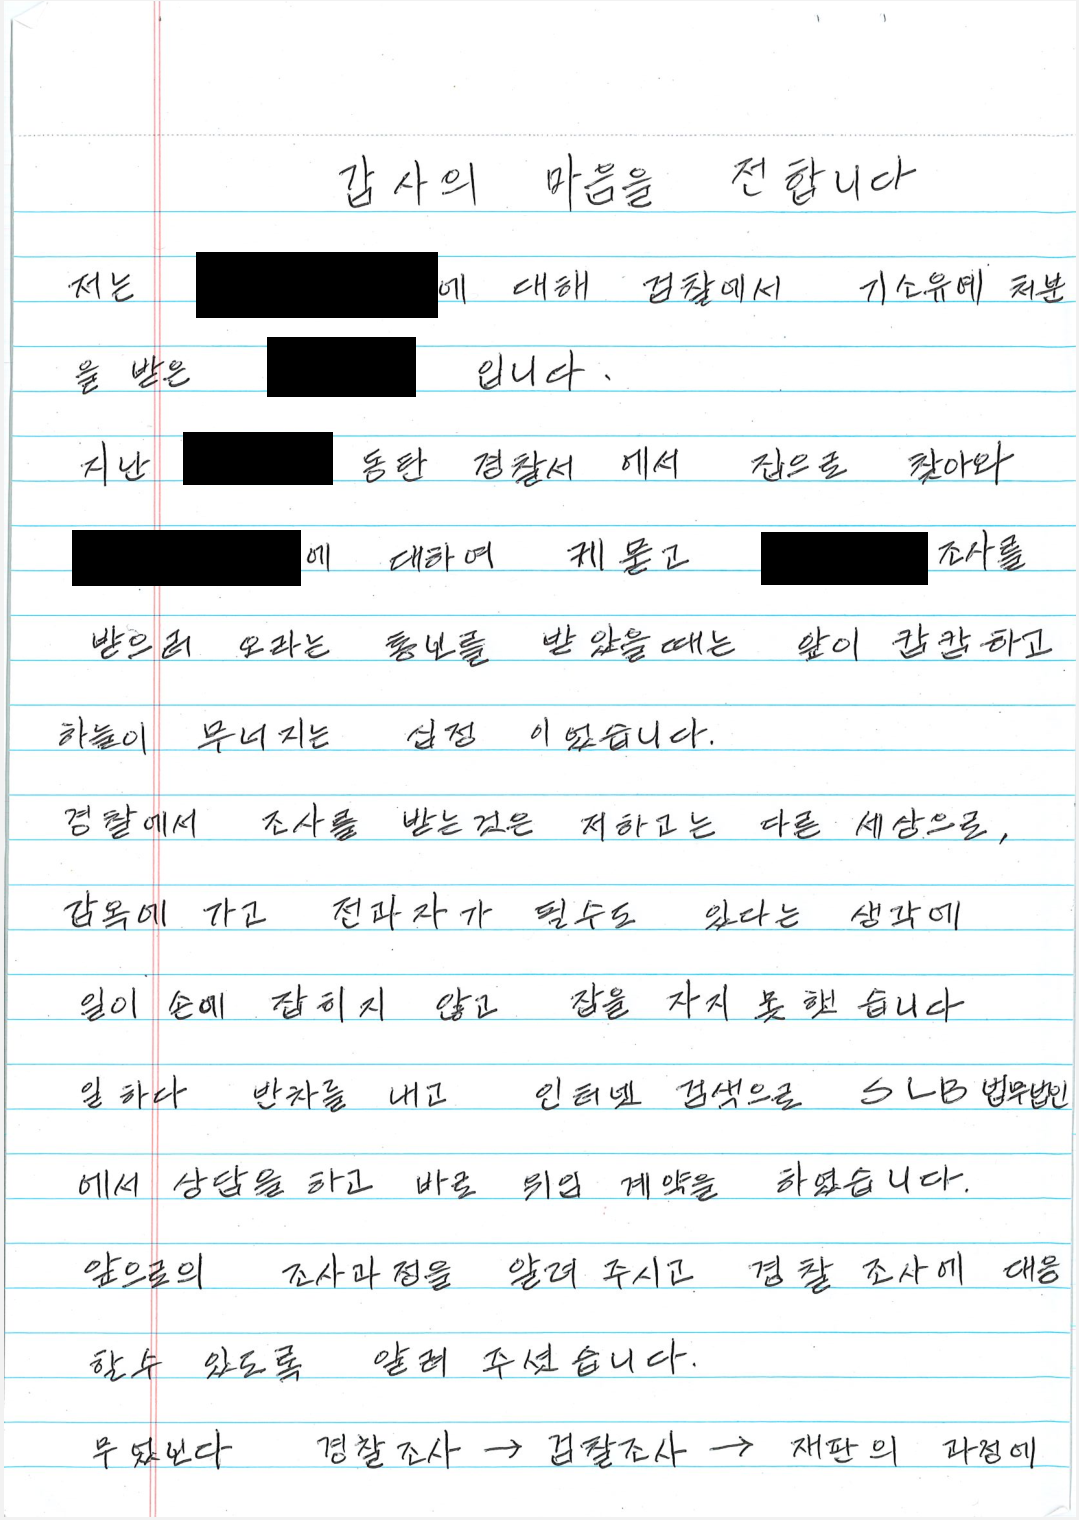 감사의 마음을 전합니다
저는 에 대해 검찰에서 기소유예 처분
을 받은 입니다.
지난 동탄 경찰서 에서 집으로 찾아와
에 대하여 케묻고 조사를
받으러 오라는 통보를 받았을때는 앞이 캄캄하고
하늘이 무너지는 심정 이었습니다.
경찰에서 조사를 받는것은 저하고는 다른 세상으로,
감옥에 가고 전과자가 될수도 있다는 생각에
일이 손에 잡히지 않고 잠을 자지 못했습니다
일하다 반차를 내고 인터넷 검색으로 SLB 법무법인
에서 상담을 하고 바로 위임 계약을 하였습니다.
앞으로의 조사과정을 알려 주시고 경찰 조사에 대응
할수 있도록 알려 주셨습니다.
무엇보다 경찰조사 → 검찰조사 → 재판의 과정에